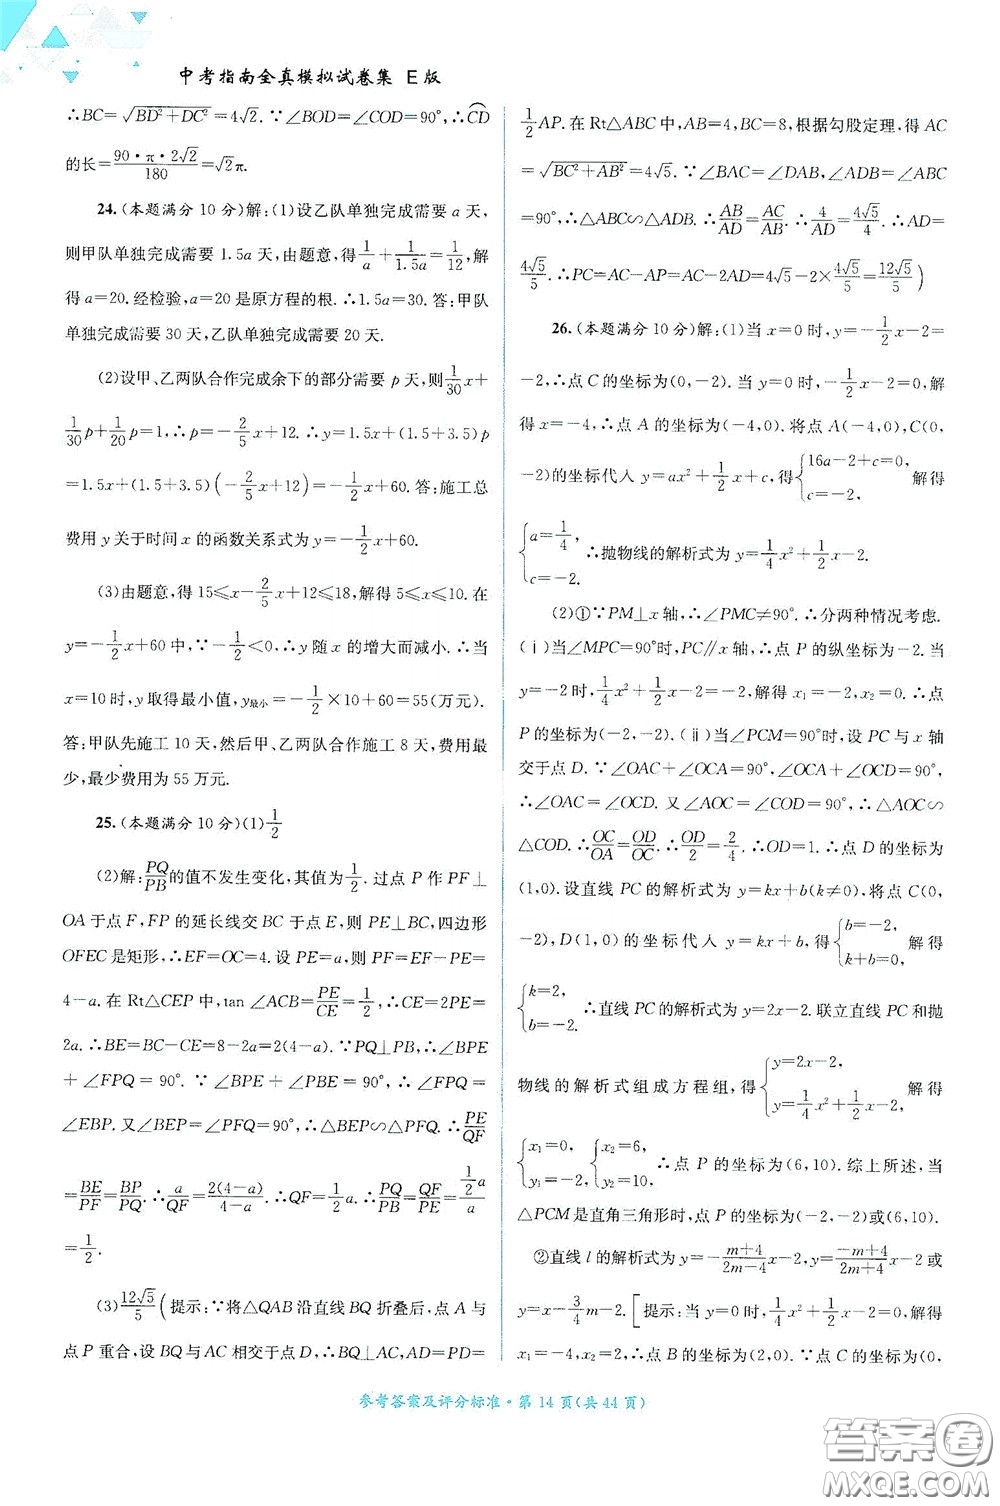 中考指南全真模拟试卷集 E版
∴BC=√(BD²+DC²)=4√2. ∵∠BOD=∠COD=90°,∴⌒CD
的长=(90·π·2√2)/180=√2π.
24.(本题满分 10 分)解:(1)设乙队单独完成需要 a 天,
则甲队单独完成需要 1.5a 天,由题意,得1/a+1/1.5a=1/12,解
得 a=20. 经检验,a=20 是原方程的根. ∴1.5a=30. 答:甲队
单独完成需要 30 天,乙队单独完成需要 20 天.
(2)设甲、乙两队合作完成余下的部分需要 p 天,则1/30x+
1/30p+1/20p=1,∴p=-2/5x+12. ∴y=1.5x+(1.5+3.5)p
=1.5x+(1.5+3.5)(-2/5x+12)=-1/2x+60. 答:施工总
费用 y 关于时间 x 的函数关系式为 y=-1/2x+60.
(3)由题意,得 15≤x-2/5x+12≤18,解得 5≤x≤10. 在
y=-1/2x+60 中,∵-1/2<0,∴y 随 x 的增大而减小. ∴当
x=10 时,y 取得最小值,y最小=-1/2×10+60=55(万元).
答:甲队先施工 10 天,然后甲、乙两队合作施工 8 天,费用最
少,最少费用为 55 万元.
25.(本题满分 10 分)(1)1/2
(2)解:PQ/PB的值不发生变化,其值为1/2. 过点 P 作 PF⊥
OA 于点 F,FP 的延长线交 BC 于点 E,则 PE⊥BC,四边形
OFEC 是矩形,∴EF=OC=4. 设 PE=a,则 PF=EF-PE=
4-a. 在 Rt△CEP 中,tan ∠ACB=PE/CE=1/2,∴CE=2PE=
2a. ∴BE=BC-CE=8-2a=2(4-a). ∵PQ⊥PB,∴∠BPE
+∠FPQ=90°. ∵∠BPE+∠PBE=90°,∴∠FPQ=
∠EBP. 又∠BEP=∠PFQ=90°,∴△BEP∽△PFQ. ∴PE/QF
=BE/PF=BP/PQ. ∴a/QF=2(4-a)/(4-a). ∴QF=1/2a. ∴PQ/PB=QF/PE=(1/2a)/a
=1/2.
(3)12√5/5(提示:∵将△QAB 沿直线 BQ 折叠后,点 A 与
点 P 重合,设 BQ 与 AC 相交于点 D,∴BQ⊥AC,AD=PD=
1/2AP. 在 Rt△ABC 中,AB=4,BC=8,根据勾股定理,得 AC
=√(BC²+AB²)=4√5. ∵∠BAC=∠DAB,∠ADB=∠ABC
=90°,∴△ABC∽△ADB. ∴AB/AD=AC/AB. ∴4/AD=4√5/4. ∴AD=
4√5/5. ∴PC=AC-AP=AC-2AD=4√5-2×4√5/5=12√5/5)
26.(本题满分 10 分)解:(1)当 x=0 时,y=-1/2x-2=
-2,∴点 C 的坐标为(0,-2). 当 y=0 时,-1/2x-2=0,解
得 x=-4,∴点 A 的坐标为(-4,0). 将点 A(-4,0),C(0,
-2)的坐标代人 y=ax²+1/2x+c,得{16a-2+c=0, c=-2, 解得
{a=1/4, c=-2. ∴抛物线的解析式为 y=1/4x²+1/2x-2.
(2)①∵PM⊥x 轴,∴∠PMC≠90°. ∴分两种情况考虑.
(ⅰ)当∠MPC=90°时,PC∥x 轴,∴点 P 的纵坐标为-2. 当
y=-2 时,1/4x²+1/2x-2=-2,解得 x₁=-2,x₂=0. ∴点
P 的坐标为(-2,-2). (ⅱ)当∠PCM=90°时,设 PC 与 x 轴
交于点 D. ∵∠OAC+∠OCA=90°,∠OCA+∠OCD=90°,
∴∠OAC=∠OCD. 又∠AOC=∠COD=90°,∴△AOC∽
△COD. ∴OC/OA=OD/OC. ∴OD/2=2/4. ∴OD=1. ∴点 D 的坐标为
(1,0). 设直线 PC 的解析式为 y=kx+b(k≠0),将点 C(0,
-2),D(1,0)的坐标代人 y=kx+b,得{b=-2, k+b=0, 解得
{k=2, b=-2. ∴直线 PC 的解析式为 y=2x-2. 联立直线 PC 和抛
物线的解析式组成方程组,得{y=2x-2, y=1/4x²+1/2x-2, 解得
{x₁=0, y₁=-2, {x₂=6, y₂=10. ∴点 P 的坐标为(6,10). 综上所述,当
△PCM 是直角三角形时,点 P 的坐标为(-2,-2)或(6,10).
②直线 l 的解析式为 y=-(m+4)/(2m-4)x-2,y=(-m+4)/(2m+4)x-2 或
y=x-3/4m-2. [提示:当 y=0 时,1/4x²+1/2x-2=0,解得
x₁=-4,x₂=2. ∴点 B 的坐标为(2,0). ∵点 C 的坐标为(0,
参考答案及评分标准·第 14 页(共 44 页)
答案圈
MXQE.COM